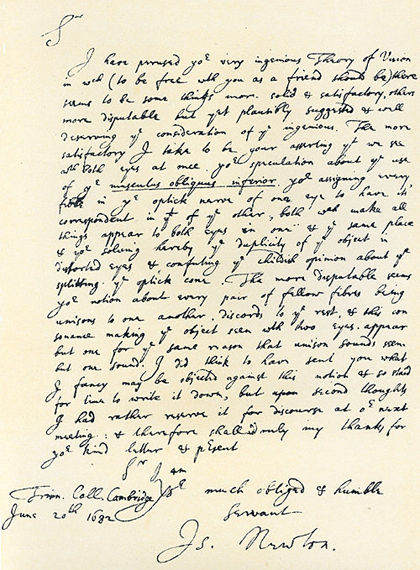 Sr
I have perused yor very ingenious Theory of Vision
in wch (to be free wth you as a friend should be) there
seems to be some things more solid & satisfactory, others
more disputable but yet plausibly suggested & well
deserving ye consideration of ye ingenious. The more
satisfactory I take to be your asserting yt we see
wth both eyes at once, yor speculation about ye use
of ye musculus obliquus inferior, yor assigning every
fibre in ye optick nerve of one eye to have its
correspondent in yt of ye other, both wch make all
things appear to both eyes in one & ye same place
& yor solving hereby ye duplicity of ye object in
distorted eyes & confuting ye childish opinion about ye
splitting ye optick cone. The more disputable seems
yor notion about every pair of fellow fibres being
unisons to one another, discords to ye rest, & this con
sonance making ye object seen with two eyes appear
but one for ye same reason that unison sounds seem
but one sound. I did think to have sent you what
I fancy may be objected against this notion & so staid
for time to write it down, but upon second thoughts
I had rather reserve it for discourse at or next
meeting: & therefore shall add only my thanks for
yor kind letter & present
Sr I am
Yor much obliged & humble
Trin. Coll. Cambridge
Servant
June 20th 1682
Is. Newton.